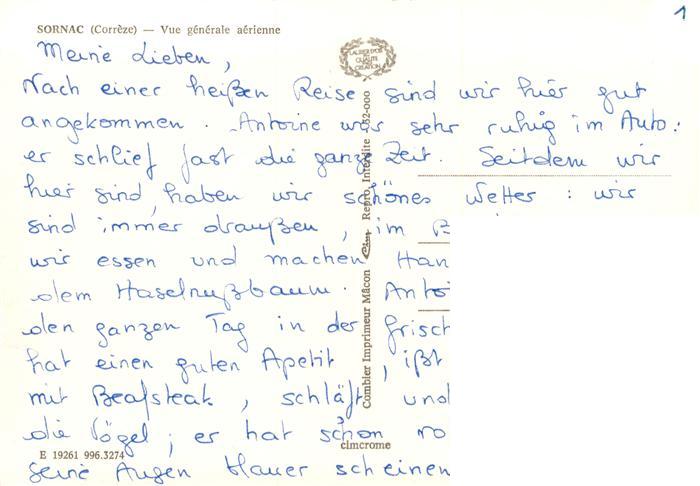 1
SORNAC (Corrèze) — Vue générale aérienne
LAURIER D'OR
QUALITÉ
CRÉATION
Meine Lieben,
Nach einer heißen Reise sind wir hier gut
angekommen. Antoine war sehr ruhig im Auto:
er schlief fast die ganze Zeit. Seitdem wir
hier sind, haben wir schönes Wetter : wir
sind immer draußen, im
wir essen und machen Han
dem Haselnußbaum. Antoi
den ganzen Tag in der frisch
hat einen guten Apetit, ißt
mit Beafsteak, schläft und
die Vögel; er hat schon ro
seine Augen blauer scheinen
Combier Imprimeur Mâcon Cim Repro. Interdite
cimcrome
E 19261 996.3274